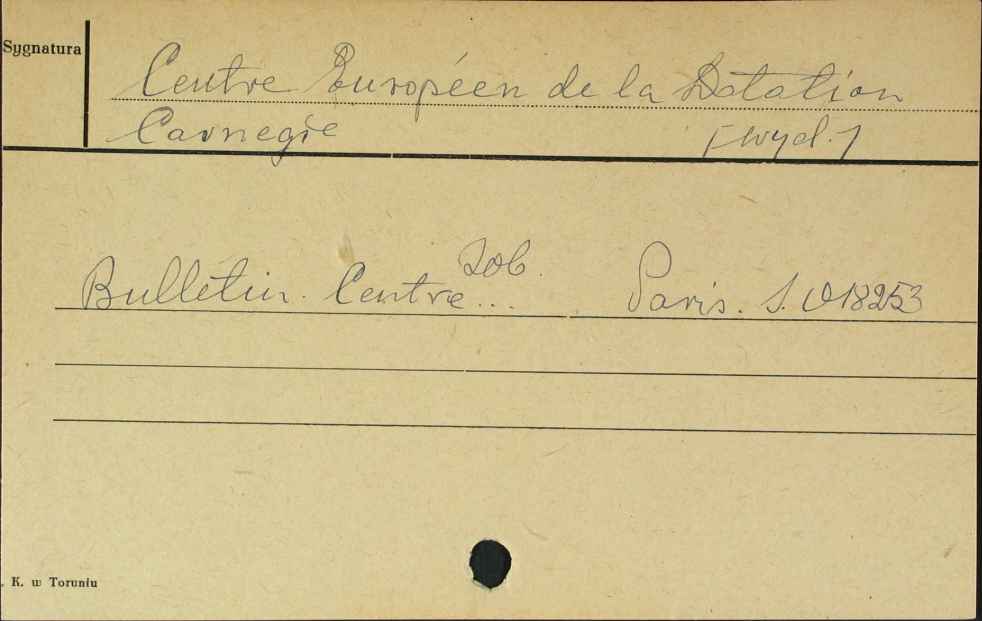 Sygnatura
Centre Européen de la Dotation
Carnegie [wyd.]
zob.
Bulletin. Centre... Paris. S. 018253
. K. w Toruniu